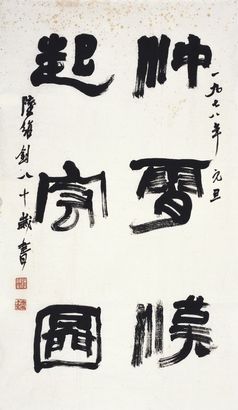 一九七八年元旦
冲霄漢
起宏圖
陸維釗八十歲書